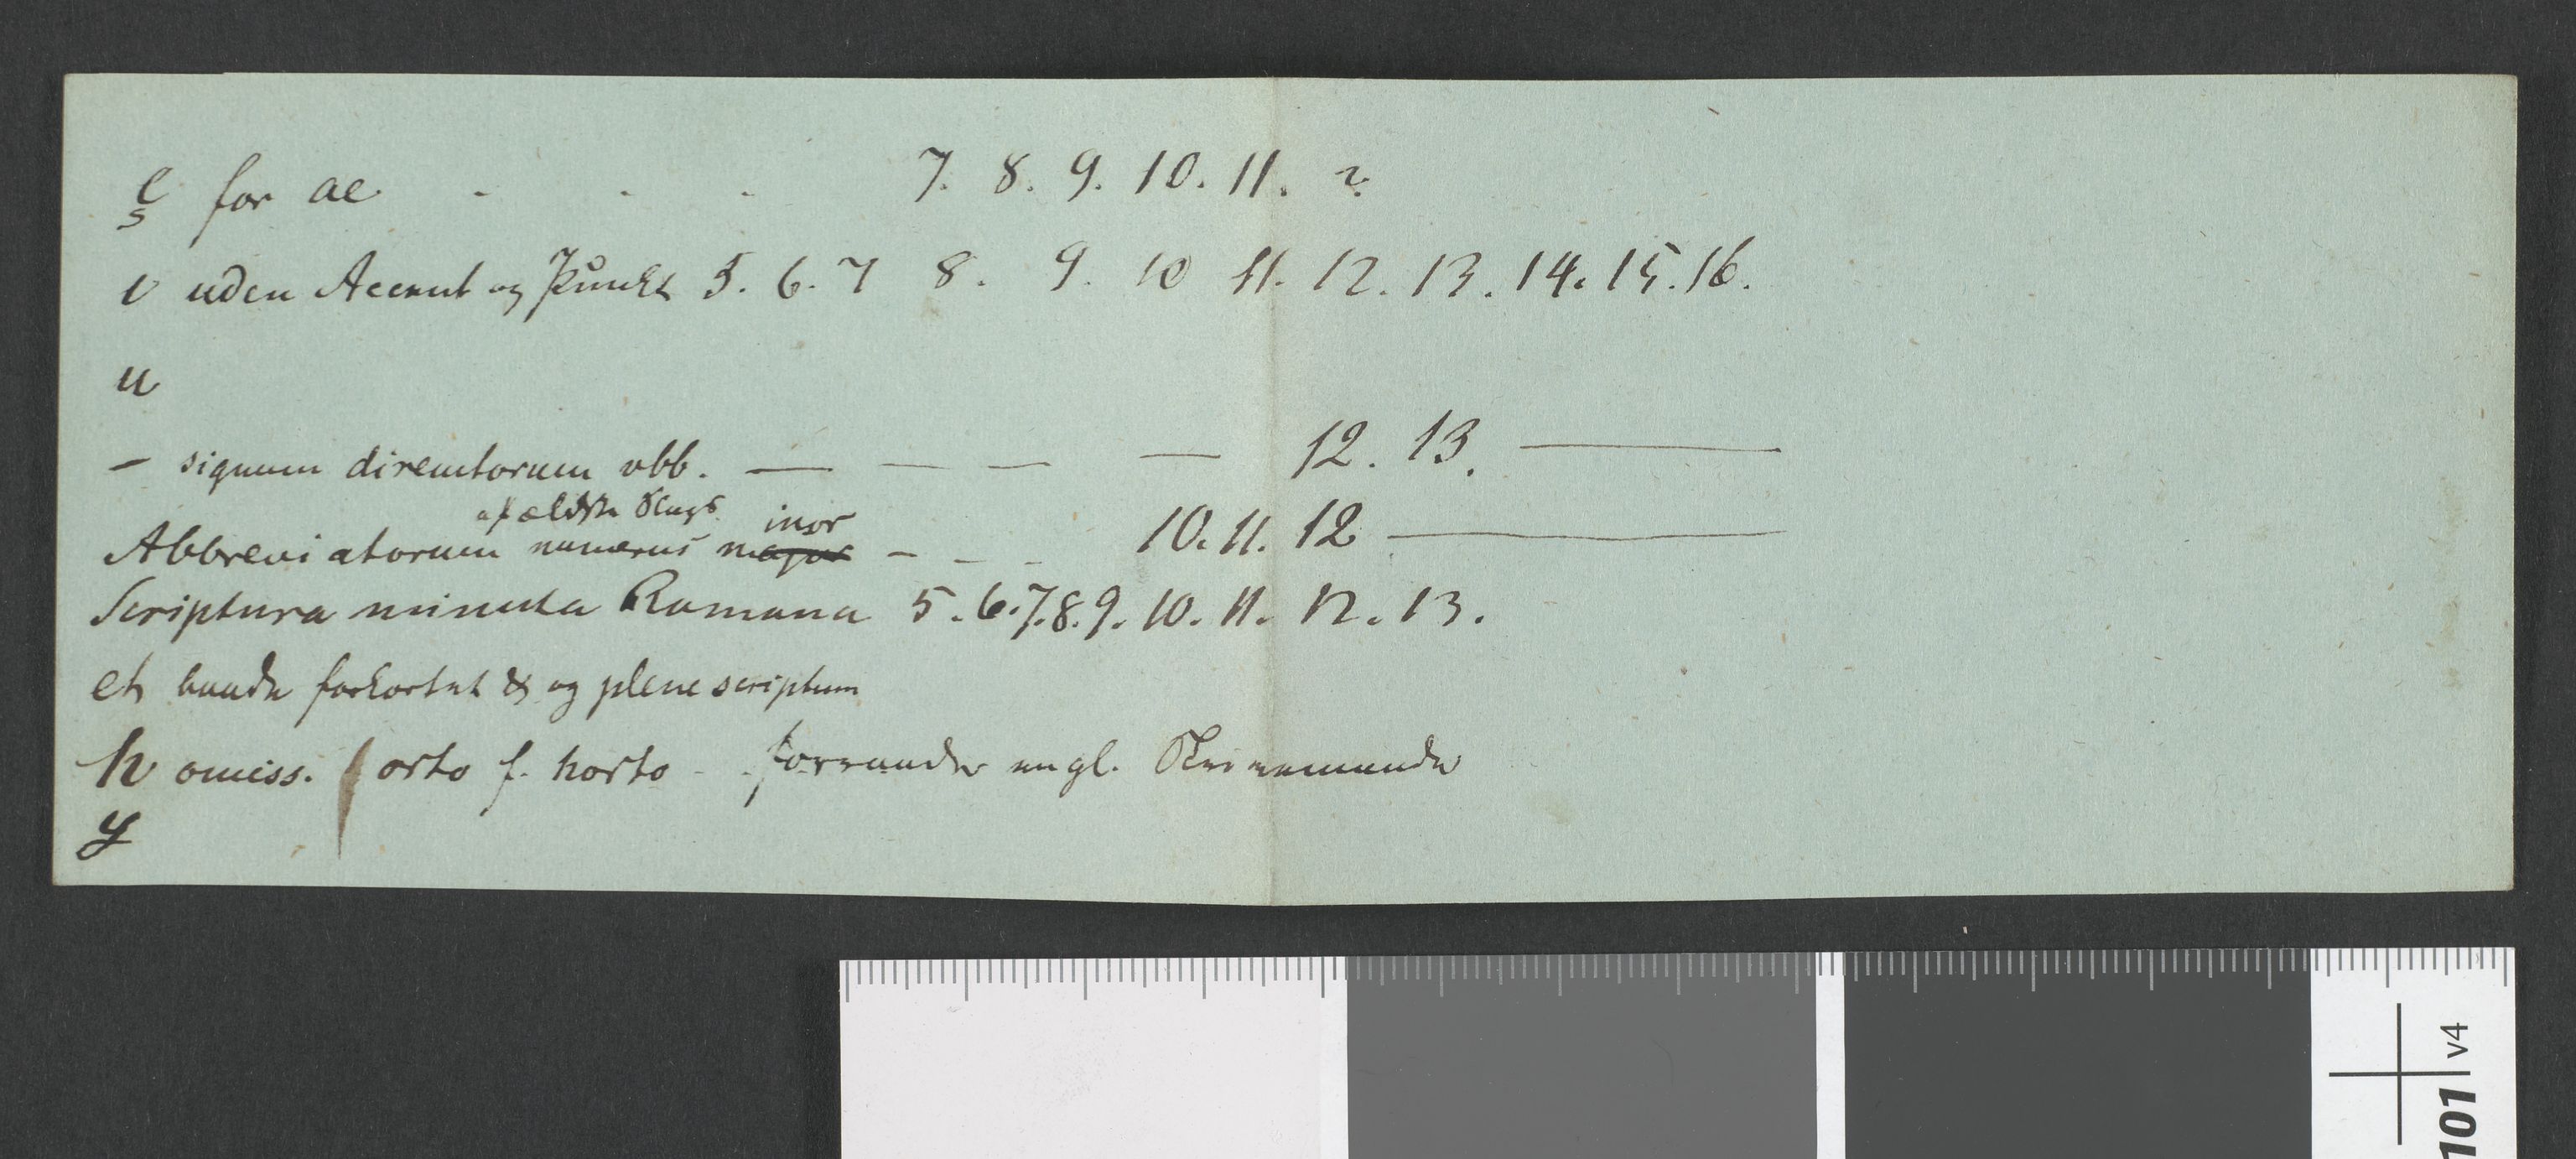 ę for ae - - - 7. 8. 9. 10. 11. ?
ı uden Accent og Punkt 5. 6. 7 8. 9. 10 11. 12. 13. 14. 15. 16.
u
— signum diremtorum vbb. — — — — 12. 13. —
af ældste Slags inor
Abbreviatorum numerus major - - - 10. 11. 12 —
Scriptura minuta Romana 5. 6. 7. 8. 9. 10. 11. 12. 13.
et baade forkortet & og plene scriptum
h omiss. orto f. horto - - forraader engl.
y
101 V4